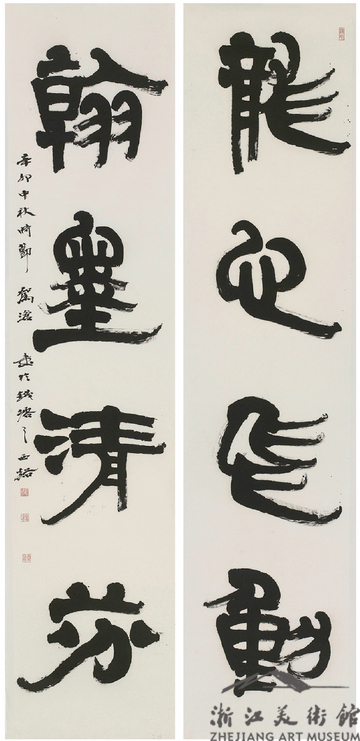 龍它飛動
翰墨清芬
辛卯中秋時節 書於錢塘之西谿
浙江美術館
ZHEJIANG ART MUSEUM